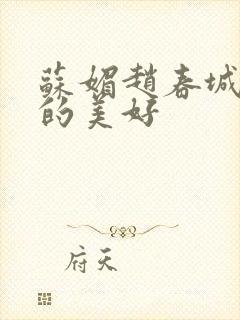 蘇媚趙春城
的美好
府天